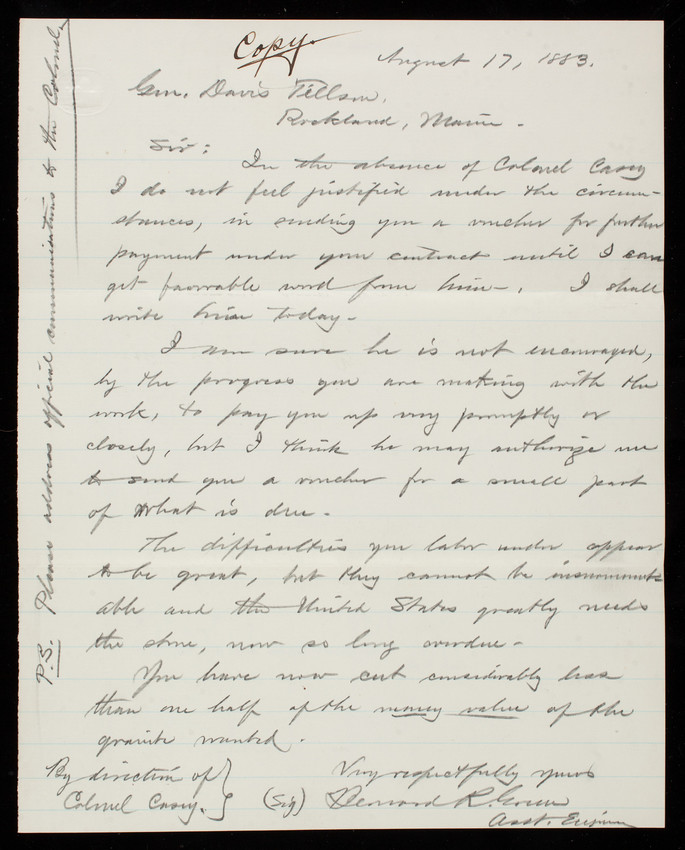 Copy.
August 17, 1883.
Gen. Davis Tillson,
Rockland, Maine -
Sir:
In the absence of Colonel Casey
I do not feel justified under the circum-
stances, in sending you a voucher for further
payment under your contract until I can
get favorable word from him -. I shall
write him today -
I am sure he is not encouraged,
by the progress you are making with the
work, to pay you up very promptly or
closely, but I think he may authorize me
to send you a voucher for a small part
of what is due -
The difficulties you labor under appear
to be great, but they cannot be insurmount-
able and the United States greatly needs
the stone, now so long overdue -
You have now cut considerably less
than one half of the money value of the
granite wanted.
Very respectfully yours
(Sig) Bernard R. Green
Asst. Engineer
By direction of
Colonel Casey.
P.S. Please address official communications to the Colonel.